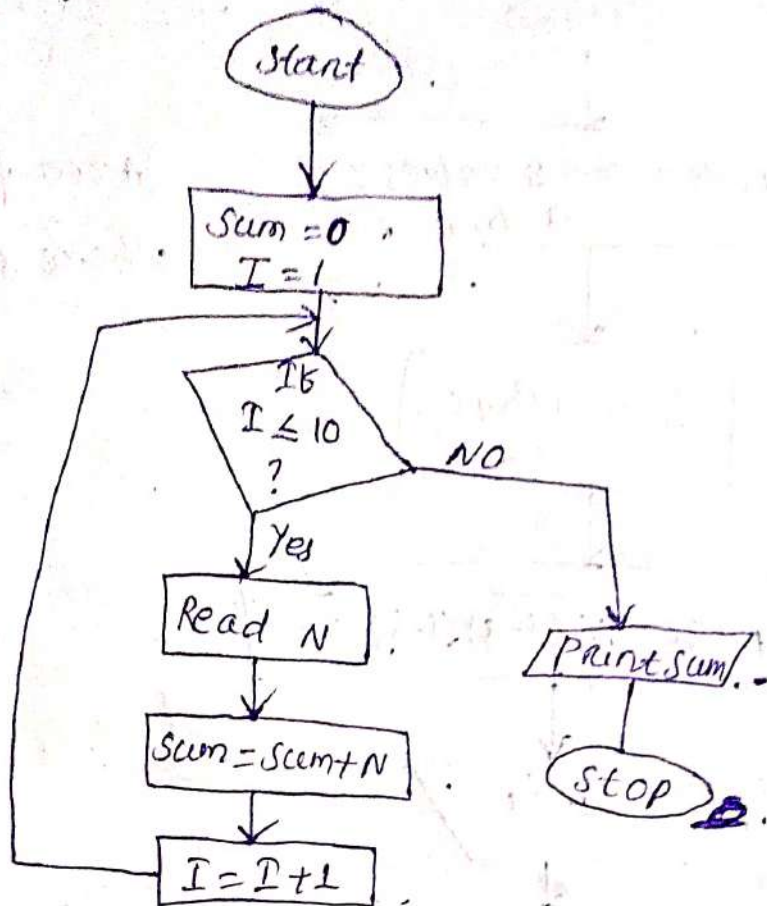 Start
Sum = 0
I = 1
If
I ≤ 10
?
NO
Yes
Read N
Print Sum
Sum = Sum + N
Stop
I = I + 1